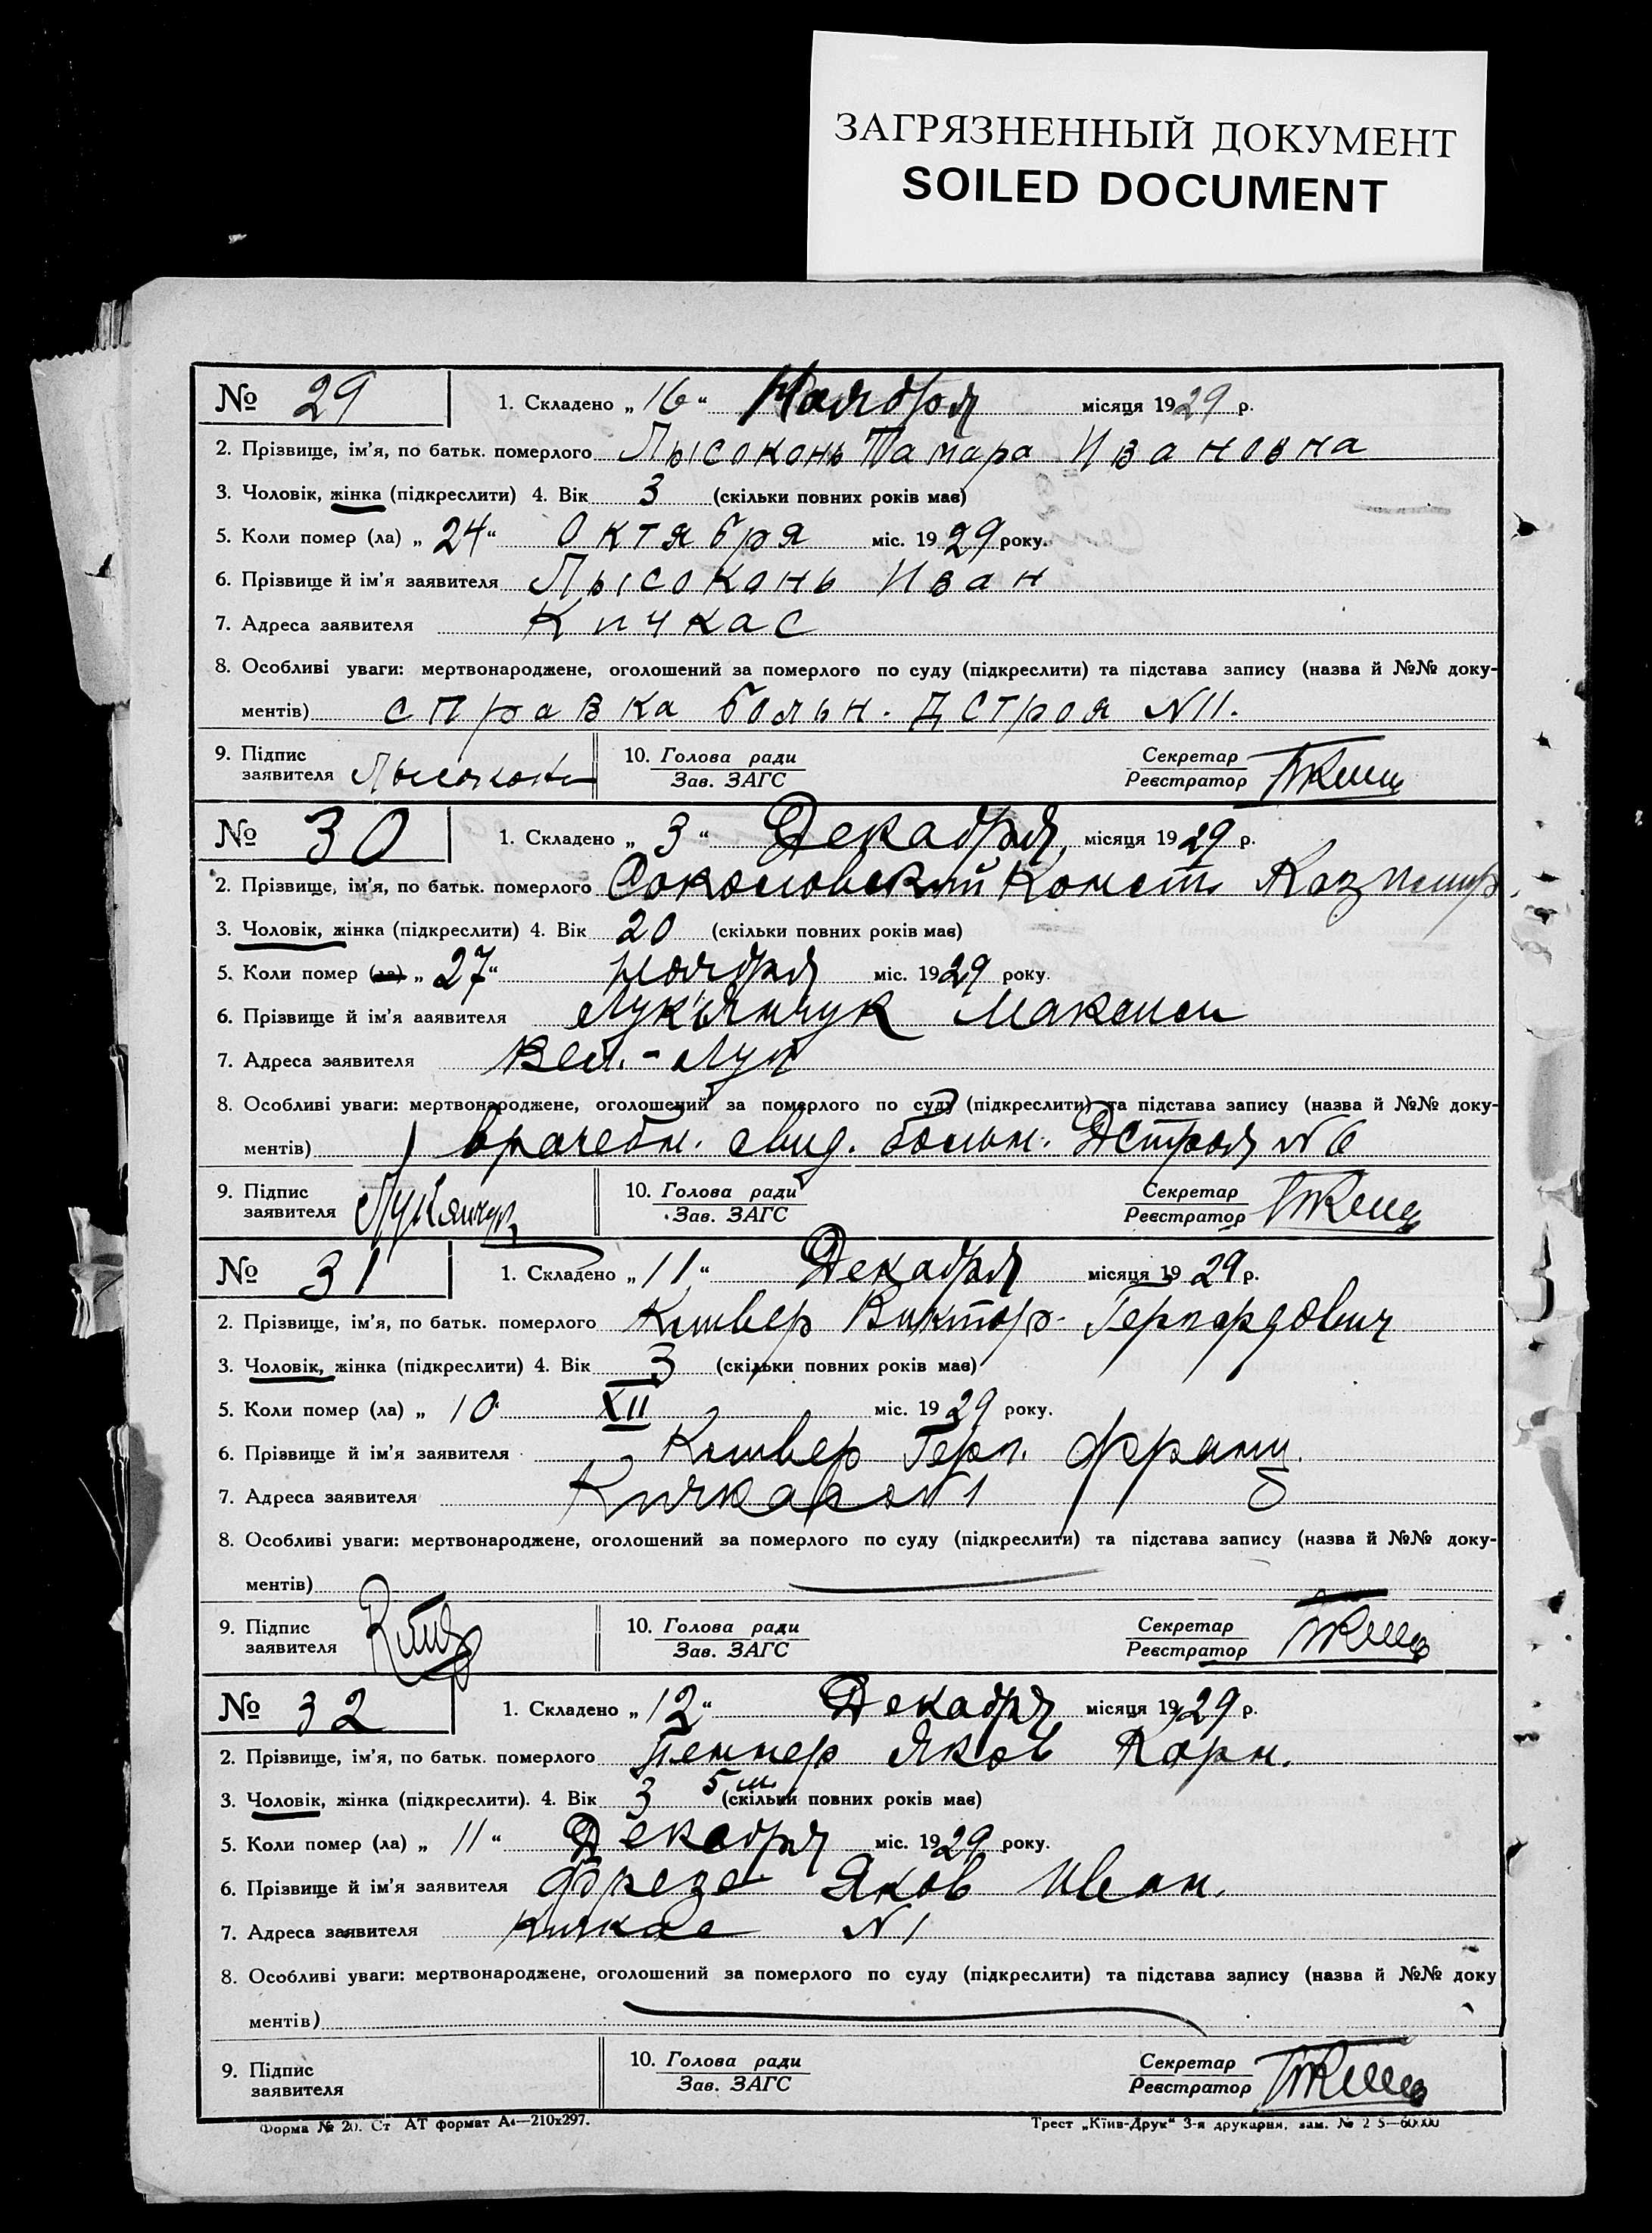 ЗАГРЯЗНЕННЫЙ ДОКУМЕНТ
SOILED DOCUMENT
№ 29 1. Складено „ 16 “ Ноября місяця 1929 р.
2. Прізвище, ім'я, по батьк. померлого Лысоконь Тамара Ивановна
3. Чоловік, жінка (підкреслити) 4. Вік 3 (скільки повних років має)
5. Коли помер (ла) „ 24 “ Октября міс. 1929 року.
6. Прізвище й ім'я заявителя Лысоконь Иван
7. Адреса заявителя Кичкас
8. Особливі уваги: мертвонароджене, оголошений за померлого по суду (підкреслити) та підстава запису (назва й №№ доку-
ментів) справка больн. Дстроя N11.
9. Підпис заявителя Лысоконь 10. Голова ради Зав. ЗАГС Секретар Реєстратор
№ 30 1. Складено „ 3 “ Декабря, місяця 1929 р.
2. Прізвище, ім'я, по батьк. померлого Соколовский Конст. Казимир.
3. Чоловік, жінка (підкреслити) 4. Вік 20 (скільки повних років має)
5. Коли помер (ла) „ 27 “ ноября міс. 1929 року.
6. Прізвище й ім'я аявителя Лук'янчук Максим
7. Адреса заявителя Вел.-Луг
8. Особливі уваги: мертвонароджене, оголошений за померлого по суду (підкреслити) та підстава запису (назва й №№ доку-
ментів) врачебн. свид. больн. Дстроя N6
9. Підпис заявителя Лукянчук 10. Голова ради Зав. ЗАГС Секретар Реєстратор
№ 31 1. Складено „ 11 “ Декабря місяця 19 29 р.
2. Прізвище, ім'я, по батьк. померлого Виктор Гергардович
3. Чоловік, жінка (підкреслити) 4. Вік 3 (скільки повних років має)
5. Коли помер (ла) „ 10 “ XII міс. 1929 року.
6. Прізвище й ім'я заявителя Франц.
7. Адреса заявителя N1
8. Особливі уваги: мертвонароджене, оголошений за померлого по суду (підкреслити) та підстава запису (назва й №№ доку-
ментів)
9. Підпис заявителя 10. Голова ради Зав. ЗАГС Секретар Реєстратор
№ 32 1. Складено „ 12 “ Декабря місяця 1929 р.
2. Прізвище, ім'я, по батьк. померлого Пеннер Яков Корн.
3. Чоловік, жінка (підкреслити). 4. Вік 3 5 м. (скільки повних років має)
5. Коли помер (ла) „ 11 “ Декабря міс. 1929 року.
6. Прізвище й ім'я заявителя Фрезе Яков Иван.
7. Адреса заявителя Кичкас N1
8. Особливі уваги: мертвонароджене, оголошений за померлого по суду (підкреслити) та підстава запису (назва й №№ доку
ментів)
9. Підпис заявителя 10. Голова ради Зав. ЗАГС Секретар Реєстратор
Форма № 20. Ст АТ формат А4—210х297. Трест „Київ-Друк“ 3-я друкарня, зам. №